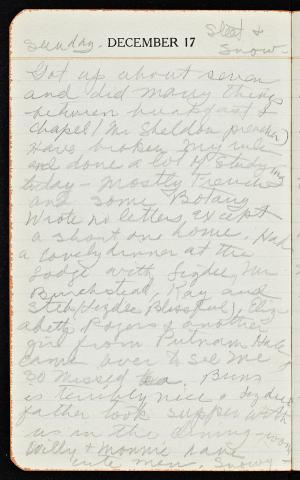 Sleet &
Sunday. DECEMBER 17 Snow.
Got up about seven
and did many things
between breakfast &
chapel (Mr Sheldon preacher)
Have broken my rule
and done a lot of studying
today - mostly French
and some Botany
Wrote no letters, except
a short one home. Had
a lovely dinner at the
Lodge with Mr
Ray and
Blissful), Eliz-
abeth Rogers & another
girl from Putnam Hall
came over to see me
so missed tea. Buns
is terribly nice &
father took supper with
us in the dining-room
Willy & Monnie have
cute men. Snowy